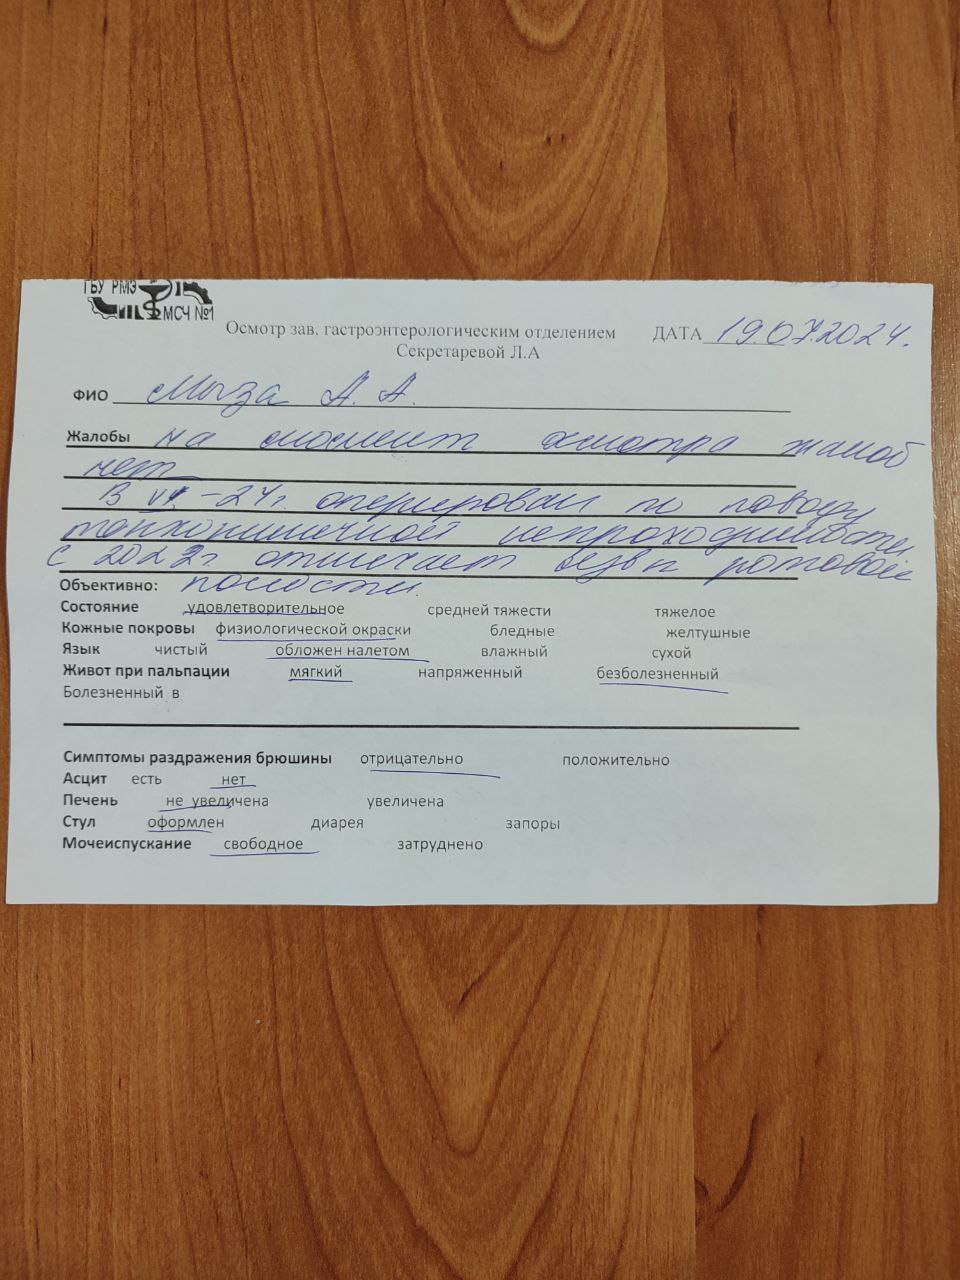 ГБУ РМЭ
МСЧ №1
Осмотр зав. гастроэнтерологическим отделением ДАТА 19.07.2024.
Секретаревой Л.А
ФИО Мыза А. А.
Жалобы на момент осмотра жалоб
нет
В VI-24г. оперирован по поводу
тонкокишечной непроходимости
С 2022г. отмечает язвы ротовой
Объективно: полости.
Состояние удовлетворительное средней тяжести тяжелое
Кожные покровы физиологической окраски бледные желтушные
Язык чистый обложен налетом влажный сухой
Живот при пальпации мягкий напряженный безболезненный
Болезненный в
Симптомы раздражения брюшины отрицательно положительно
Асцит есть нет
Печень не увеличена увеличена
Стул оформлен диарея запоры
Мочеиспускание свободное затруднено